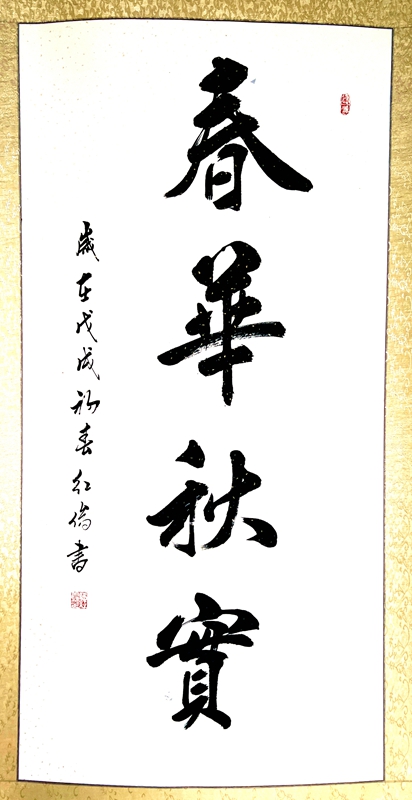 春華秋實
歲在戊戌初春紅倫書